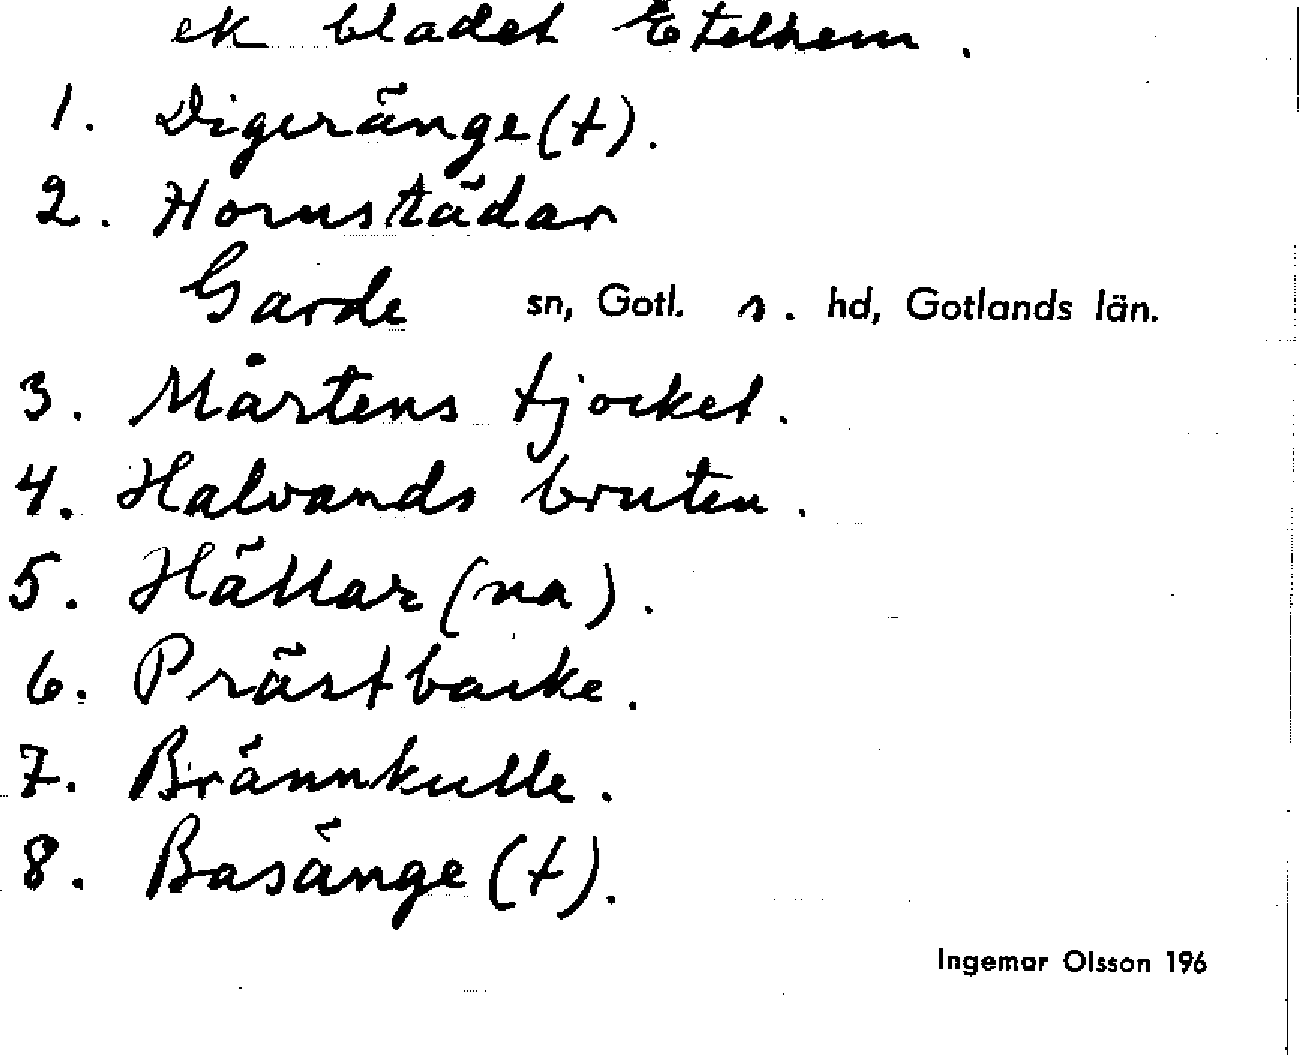 ek bladet Etelhem.
1. Digeränge(t).
2. Hornstädar
Garde sn, Gotl. s. hd, Gotlands län.
3. Mårtens tjocket.
4. Halvands bruten.
5. Hällar(na).
6. Prästbacke.
7. Brännkulle.
8. Basänge(t).
Ingemar Olsson 196